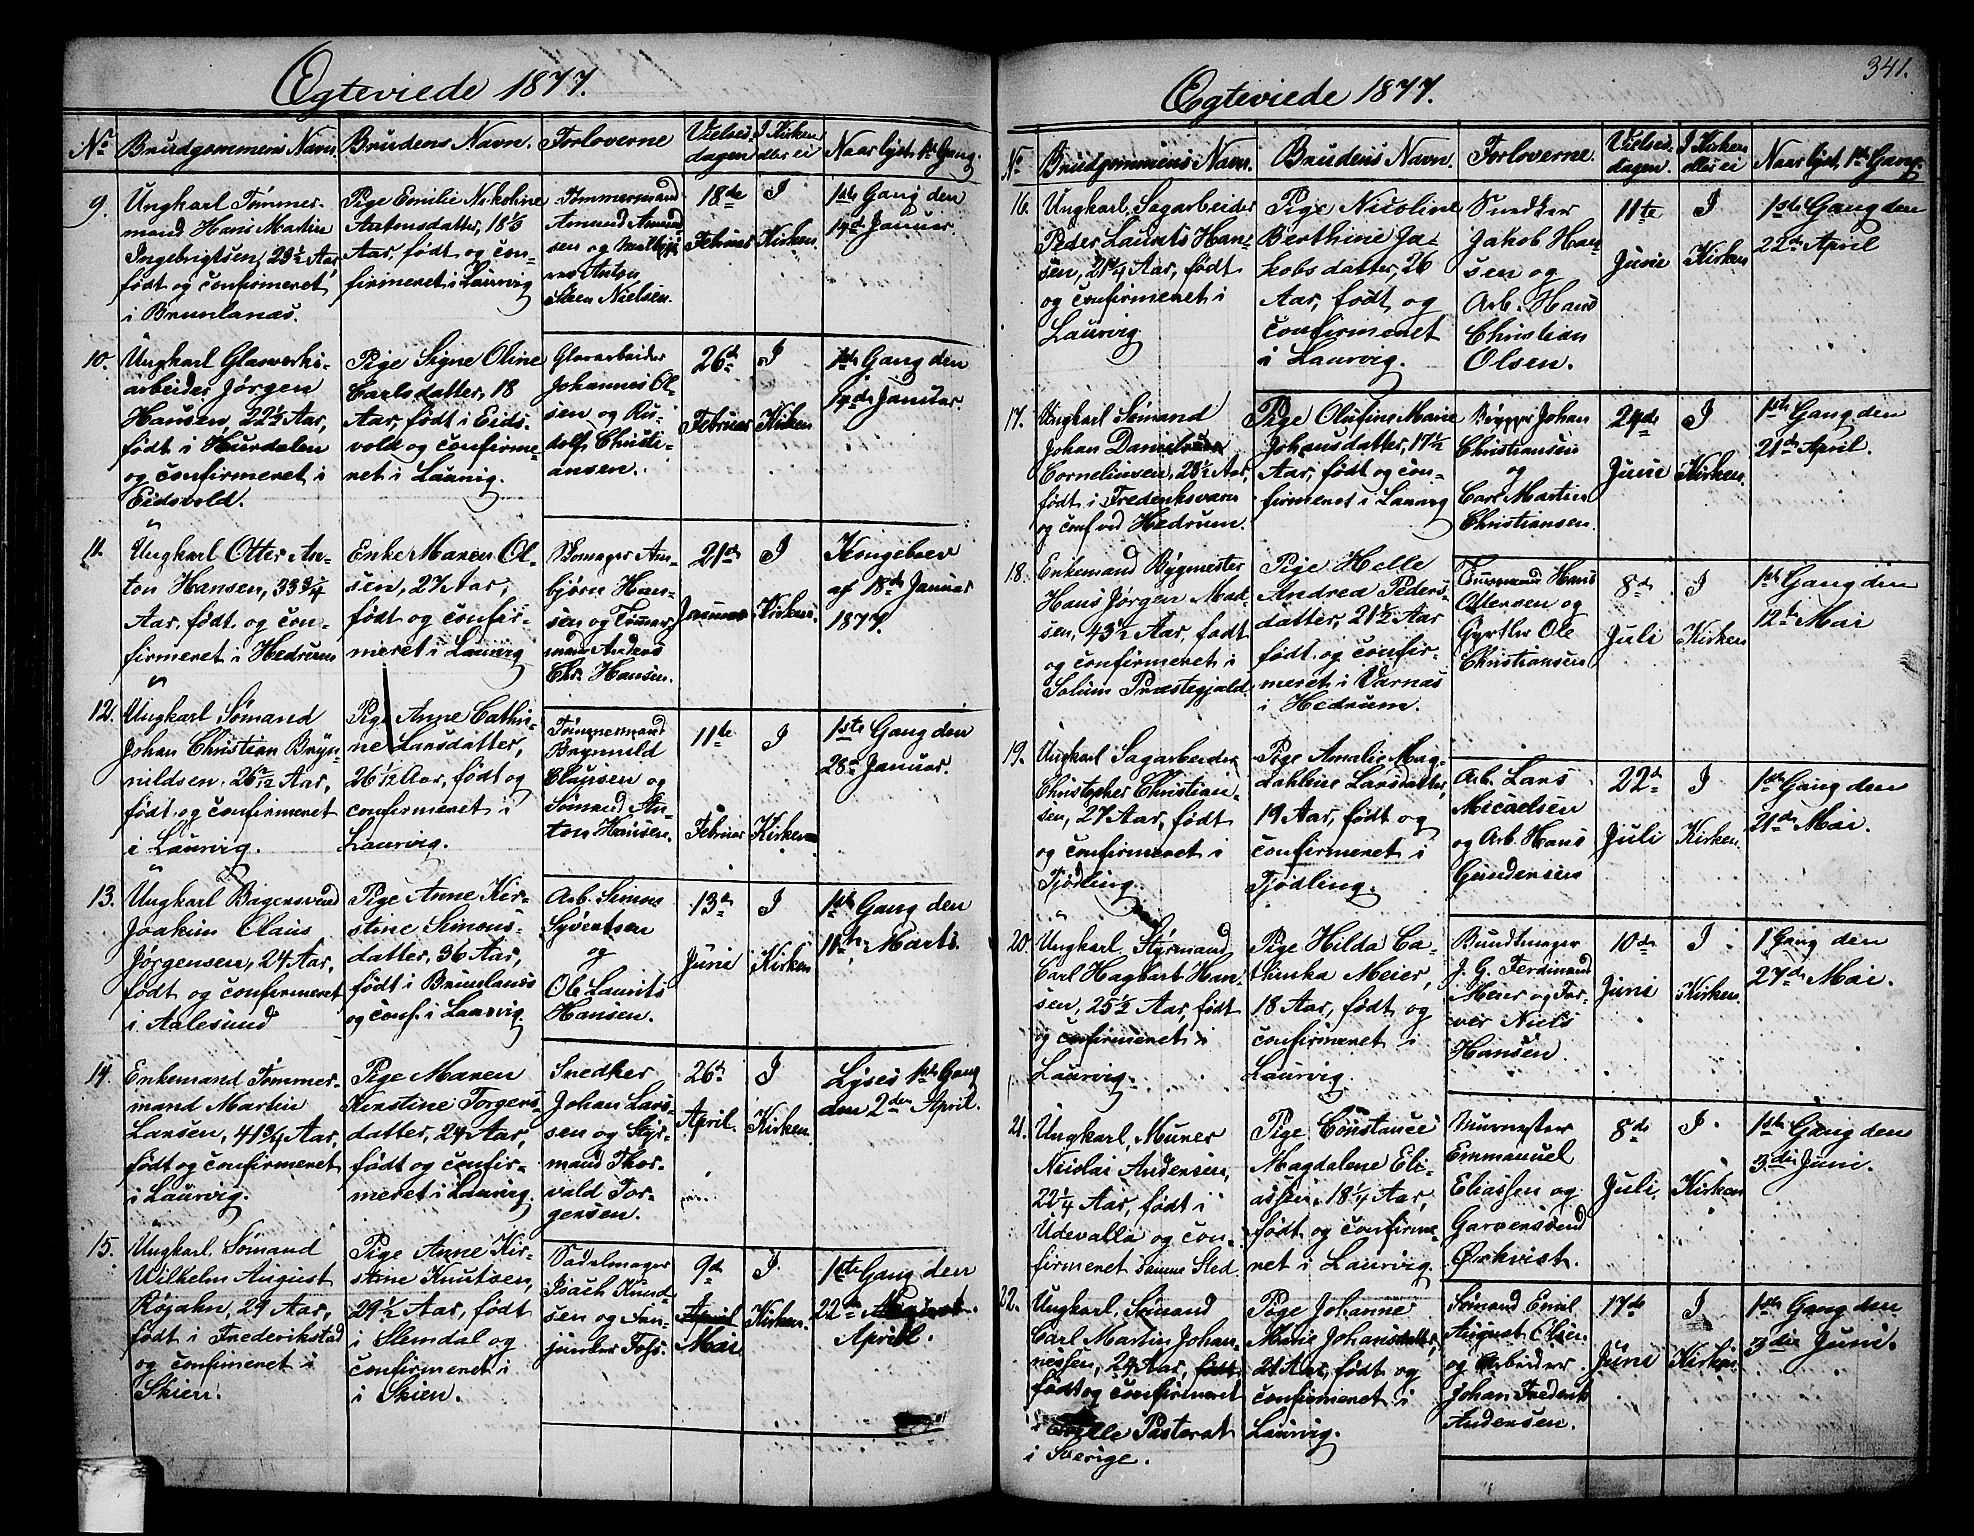 Ægteviede 1877.
No Brudgommens Navn. Brudens Navn. Forloverne Vielses- dagen I Kirken eller ei Naar lyst 1ste Gang.
9. Ungkarl Tømmer-
mand Hans Martin
Ingebrigtsen, 23½ Aar
født og confirmeret
i Brunlanæs.
Pige Emilie Nikoline
Antonsdatter, 18⅓
Aar, født og con-
firmeret i Laurvig
Tømmermand
Amund Amund-
sen og
Anton
Steen Nielsen.
18de
Februar
I
Kirken
1ste Gang den
14de Januar.
10. Ungkarl Glasverks-
arbeider Jørgen
Hansen, 22½ Aar,
født i Hurdalen
og confirmeret i
Eidsvold.
Pige Signe Oline
Carlsdatter, 18
Aar, født i Eids-
vold og confirme-
ret i Laurvig.
Glasarbeider
Johannes Ol-
sen og
Christi-
ansen.
26de
Februar
I
Kirken
1ste Gang den
14de Januar.
11. Ungkarl Otter An-
ton Hansen, 33¾
Aar, født og con-
firmeret i Hedrum
Enke Maren Ol-
sen, 27 Aar,
født og confir-
meret i Laurvig
Skomager Am-
bjørn Han-
sen og Tømmer-
mand Anders
Chr. Hansen.
21de
Januar
I
Kirken.
Kongebrev
af 18de Januar
1877.
12. Ungkarl Sømand
Johan Christian Bryn-
nildsen, 26 Aar,
født og confirmeret
i Laurvig.
Pige Anne Cathri-
ne Larsdatter,
26 1/12 Aar, født og
confirmeret i
Laurvig.
Tømmermand
Brynnild
Clausen og
Sømand An-
ton Hansen.
11te
Februar
I
Kirken
1ste Gang den
28de Januar.
13. Ungkarl Bagersvend
Joakim Olaus
Jørgensen, 24 Aar,
født og confirmeret
i Aalesund
Pige Anne Kir-
stine Simons-
datter, 36 Aar,
født i Brunlanæs
og conf. i Laurvig.
Arb. Simon
Syvertsen
og
Ole Laurits
Hansen.
13de
Juni
I
Kirken
1ste Gang den
11te Marts.
14. Enkemand Tømmer-
mand Martin
Larsen, 41¾ Aar,
født og confirmeret
i Laurvig.
Pige Maren
Kirstine Torgers-
datter, 24 Aar,
født og confir-
meret i Laurvig.
Snedker
Johan Lars-
sen og Styr-
mand Thor-
vald Tor-
gersen.
26de
April.
I
Kirken.
Lyses 1ste Gang
den 2den April.
15. Ungkarl Sømand
Wilhelm August
Røjahn, 29 Aar,
født i Frederikstad
og confirmeret i
Skien.
Pige Anne Kir-
stine Knutsen,
29½ Aar, født
i Slemdal og
confirmeret i
i Skien.
Sadelmager
Knud-
sen og

9de
April
Mai
I
Kirken.
1ste Gang den
22de
April.
341.
Ægteviede 1877.
No Brudgommens Navn. Brudens Navn. Forloverne. Vielses- dagen. I Kirken eller ei Naar lyst 1ste Gang
16. Ungkarl, Sagarbeider
Peder Laurits Han-
sen, 21¼ Aar, født
og confirmeret i
Laurvig
Pige Nicoline
Berthine Ja-
kobsdatter, 26
Aar, født og
confirmeret
i Laurvig.
Snedker
Jakob Han-
sen og
Arb. Hans
Christian
Olsen.
11te
Juni
I
Kirken
1ste Gang den
22de April
17. Ungkarl Sømand
Johan
Corneliusen, 23½ Aar,
født i Fredriksværn
og conf. ved Hedrum.
Pige Olufine Marie
Johansdatter, 17½
Aar, født og con-
firmeret i Laurvig
Brygger Johan
Christiansen
og
Carl Martin
Christiansen.
24de
Juni
I
Kirken.
1ste Gang den
21de April.
18. Enkemand Bygmester
Hans Jørgen Mad-
sen, 43½ Aar, født
og confirmeret i
Solum Præstegjæld.
Pige Helle
Andrea Peders-
datter, 21½ Aar
født og confir-
meret i Varnæs
i Hedrum.
Tømmermand Hans
Ottersen og
Gyrtler Ole
Christiansen
8de
Juli
I
Kirken
1ste Gang den
12te Mai
19. Ungkarl Sagarbeider
Christopher Christian-
sen, 27 Aar, født
og confirmeret i
Tjødling.
Pige Amalie Mag-
dahline Larsdatter,
19 Aar, født og
confirmeret i
Tjødling.
Arb. Lars
Micaelsen
og Arb. Hans
Gundersen
22de
Juli
I
Kirken.
1ste Gang den
21de Mai.
20. Ungkarl Styrmand
Carl Hagbart Han-
sen, 25½ Aar, født
og confirmeret i
Laurvig.
Pige Hilda Ca-
thinka Meier,
18 Aar, født og
confirmeret i
Laurvig.
Bundtmager
J. G. Ferdinand
Meier og Far-
ver Niels
Hansen.
10de
Juni
I
Kirken.
1 Gang den
27de Mai.
21. Ungkarl, Murer
Nicolai Andersen,
22¼ Aar, født i
Udevalla og con-
firmeret samme Sted.
Pige Constance
Magdalene Eli-
assen, 18¼ Aar,
født og confirme-
ret i Laurvig.
Murmester
Emmanuel
Eliassen og
Garversvend
Ørkvist.
8de
Juli.
I
Kirken
1ste Gang den
3die Juni.
22. Ungkarl, Sømand
Carl Martin Johan-
nessen, 24 Aar, født
født og confirmeret
i Pastorat
i Sverige.
Pige Johanne
Marie Johansdatter,
21 Aar, født og
confirmeret i
Laurvig.
Sømand Emil
August
og Arbeider
Johan Fredrik
Andersen.
17de
Juni
I
Kirken.
1ste Gang den
3die Juni.